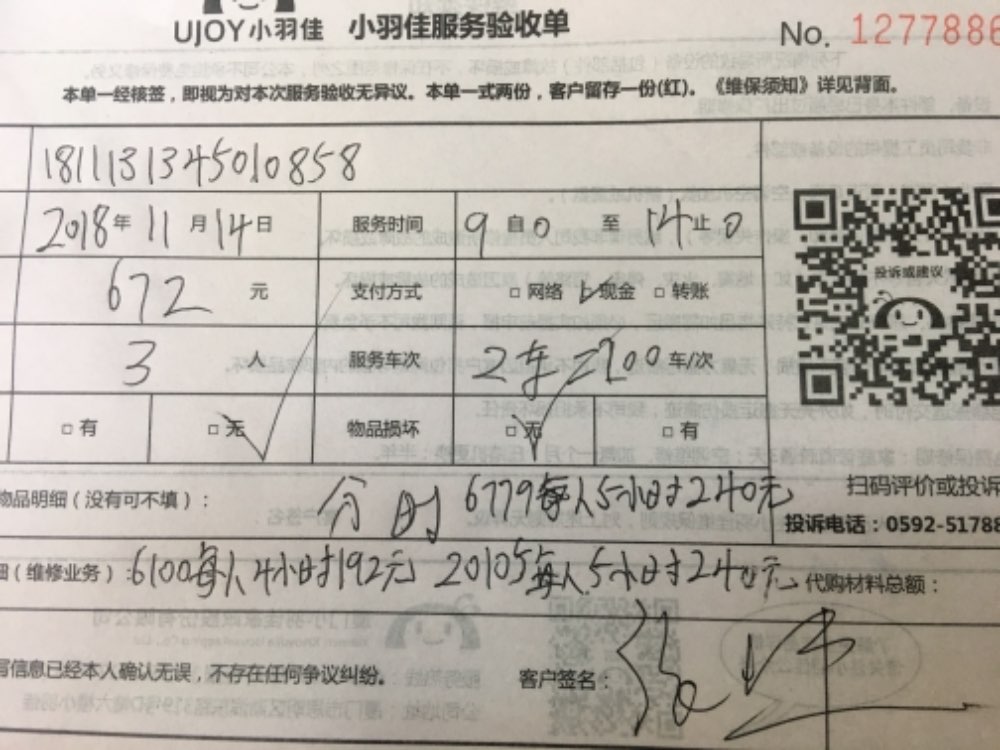 UJOY小羽佳 小羽佳服务验收单 No. 1277886
本单一经核签，即视为对本次服务验收无异议。本单一式两份，客户留存一份(红)。《维保须知》详见背面。
1811131345010858
2018年11月14日 服务时间 9自0至14止0
672元 支付方式 □网络 ☑现金 □转账
3人 服务车次 2车=200车/次
□有 □无 物品损坏 □无 □有
投诉或建议
物品明细（没有可不填）： 分时 6779每人5小时240元
扫码评价或投诉
投诉电话：0592-51788
（维修业务）：6100每人4小时192元 20105每人5小时240元 代购材料总额：
信息已经本人确认无误，不存在任何争议纠纷。 客户签名：